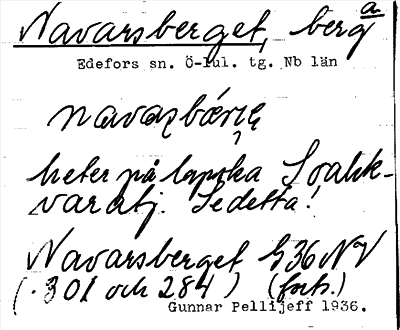 Navarsberget, berg a
Edefors sn. Ö-lul. tg. Nb län
heter på lapska Soakk-
varatj. Se detta!
Navarsberget h36 NV
(. 301 och 284) (forts.)
Gunnar Pellijeff 1936.